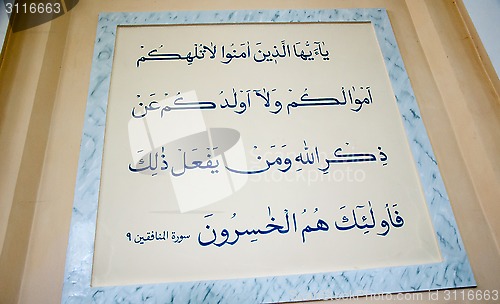 3114656
يٰٓأَيُّهَا الَّذِينَ اٰمَنُوا لَا تُلْهِكُمْ
اَمْوَالُكُمْ وَلَآ اَوْلَادُكُمْ عَنْ
ذِكْرِ اللهِ وَمَنْ يَفْعَلْ ذٰلِكَ
فَأُولٰئِكَ هُمُ الْخٰسِرُونَ سورة المنافقين ٩
© depositphotos.com/3114656